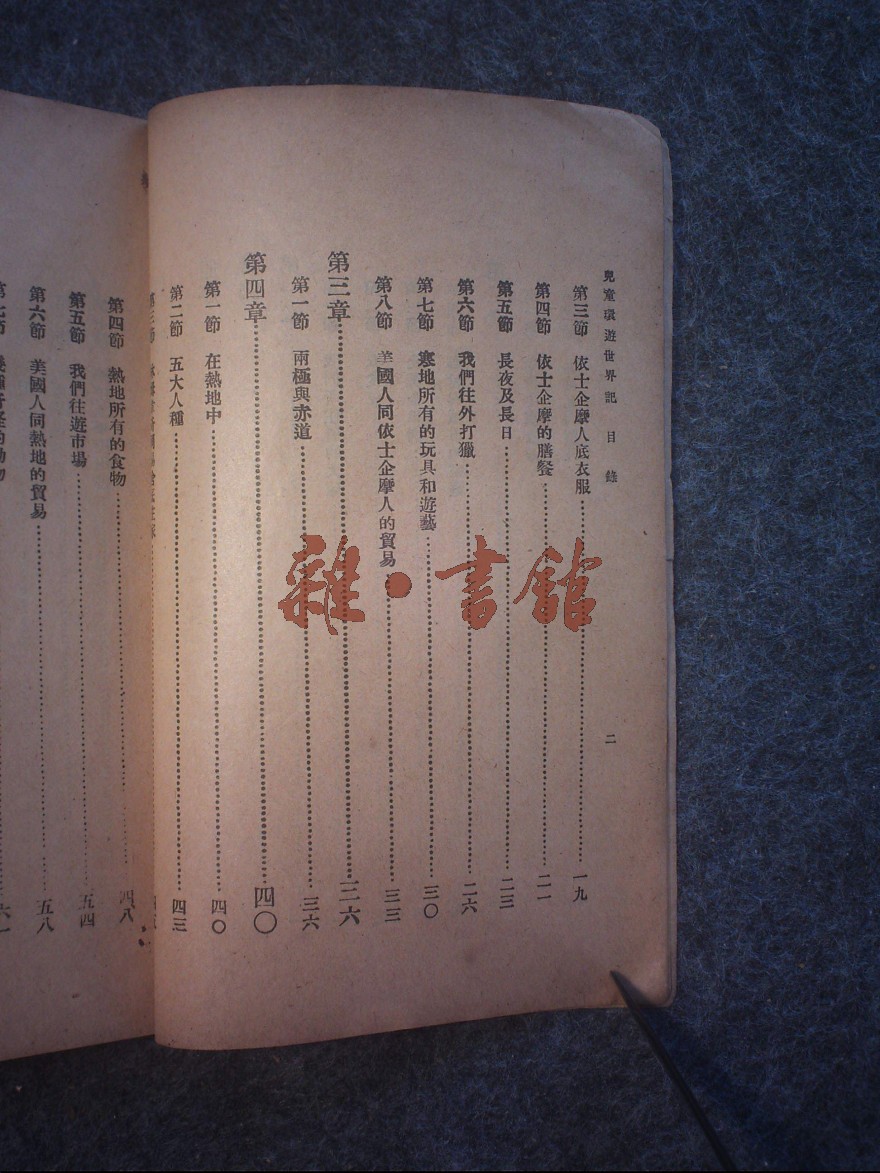 兒童環遊世界記 目錄 二
第三節 依士企摩人底衣服 一九
第四節 依士企摩的膳餐 二一
第五節 長夜及長日 二三
第六節 我們往外打獵 二六
第七節 寒地所有的玩具和遊藝 三〇
第八節 美國人同依士企摩人的貿易 三三
第三章 三六
第一節 兩極與赤道 三六
第四章 四〇
第一節 在熱地中 四〇
第二節 五大人種 四三
第四節 熱地所有的食物 四八
第五節 我們往遊市場 五四
第六節 美國人同熱地的貿易 五八
雜·書館